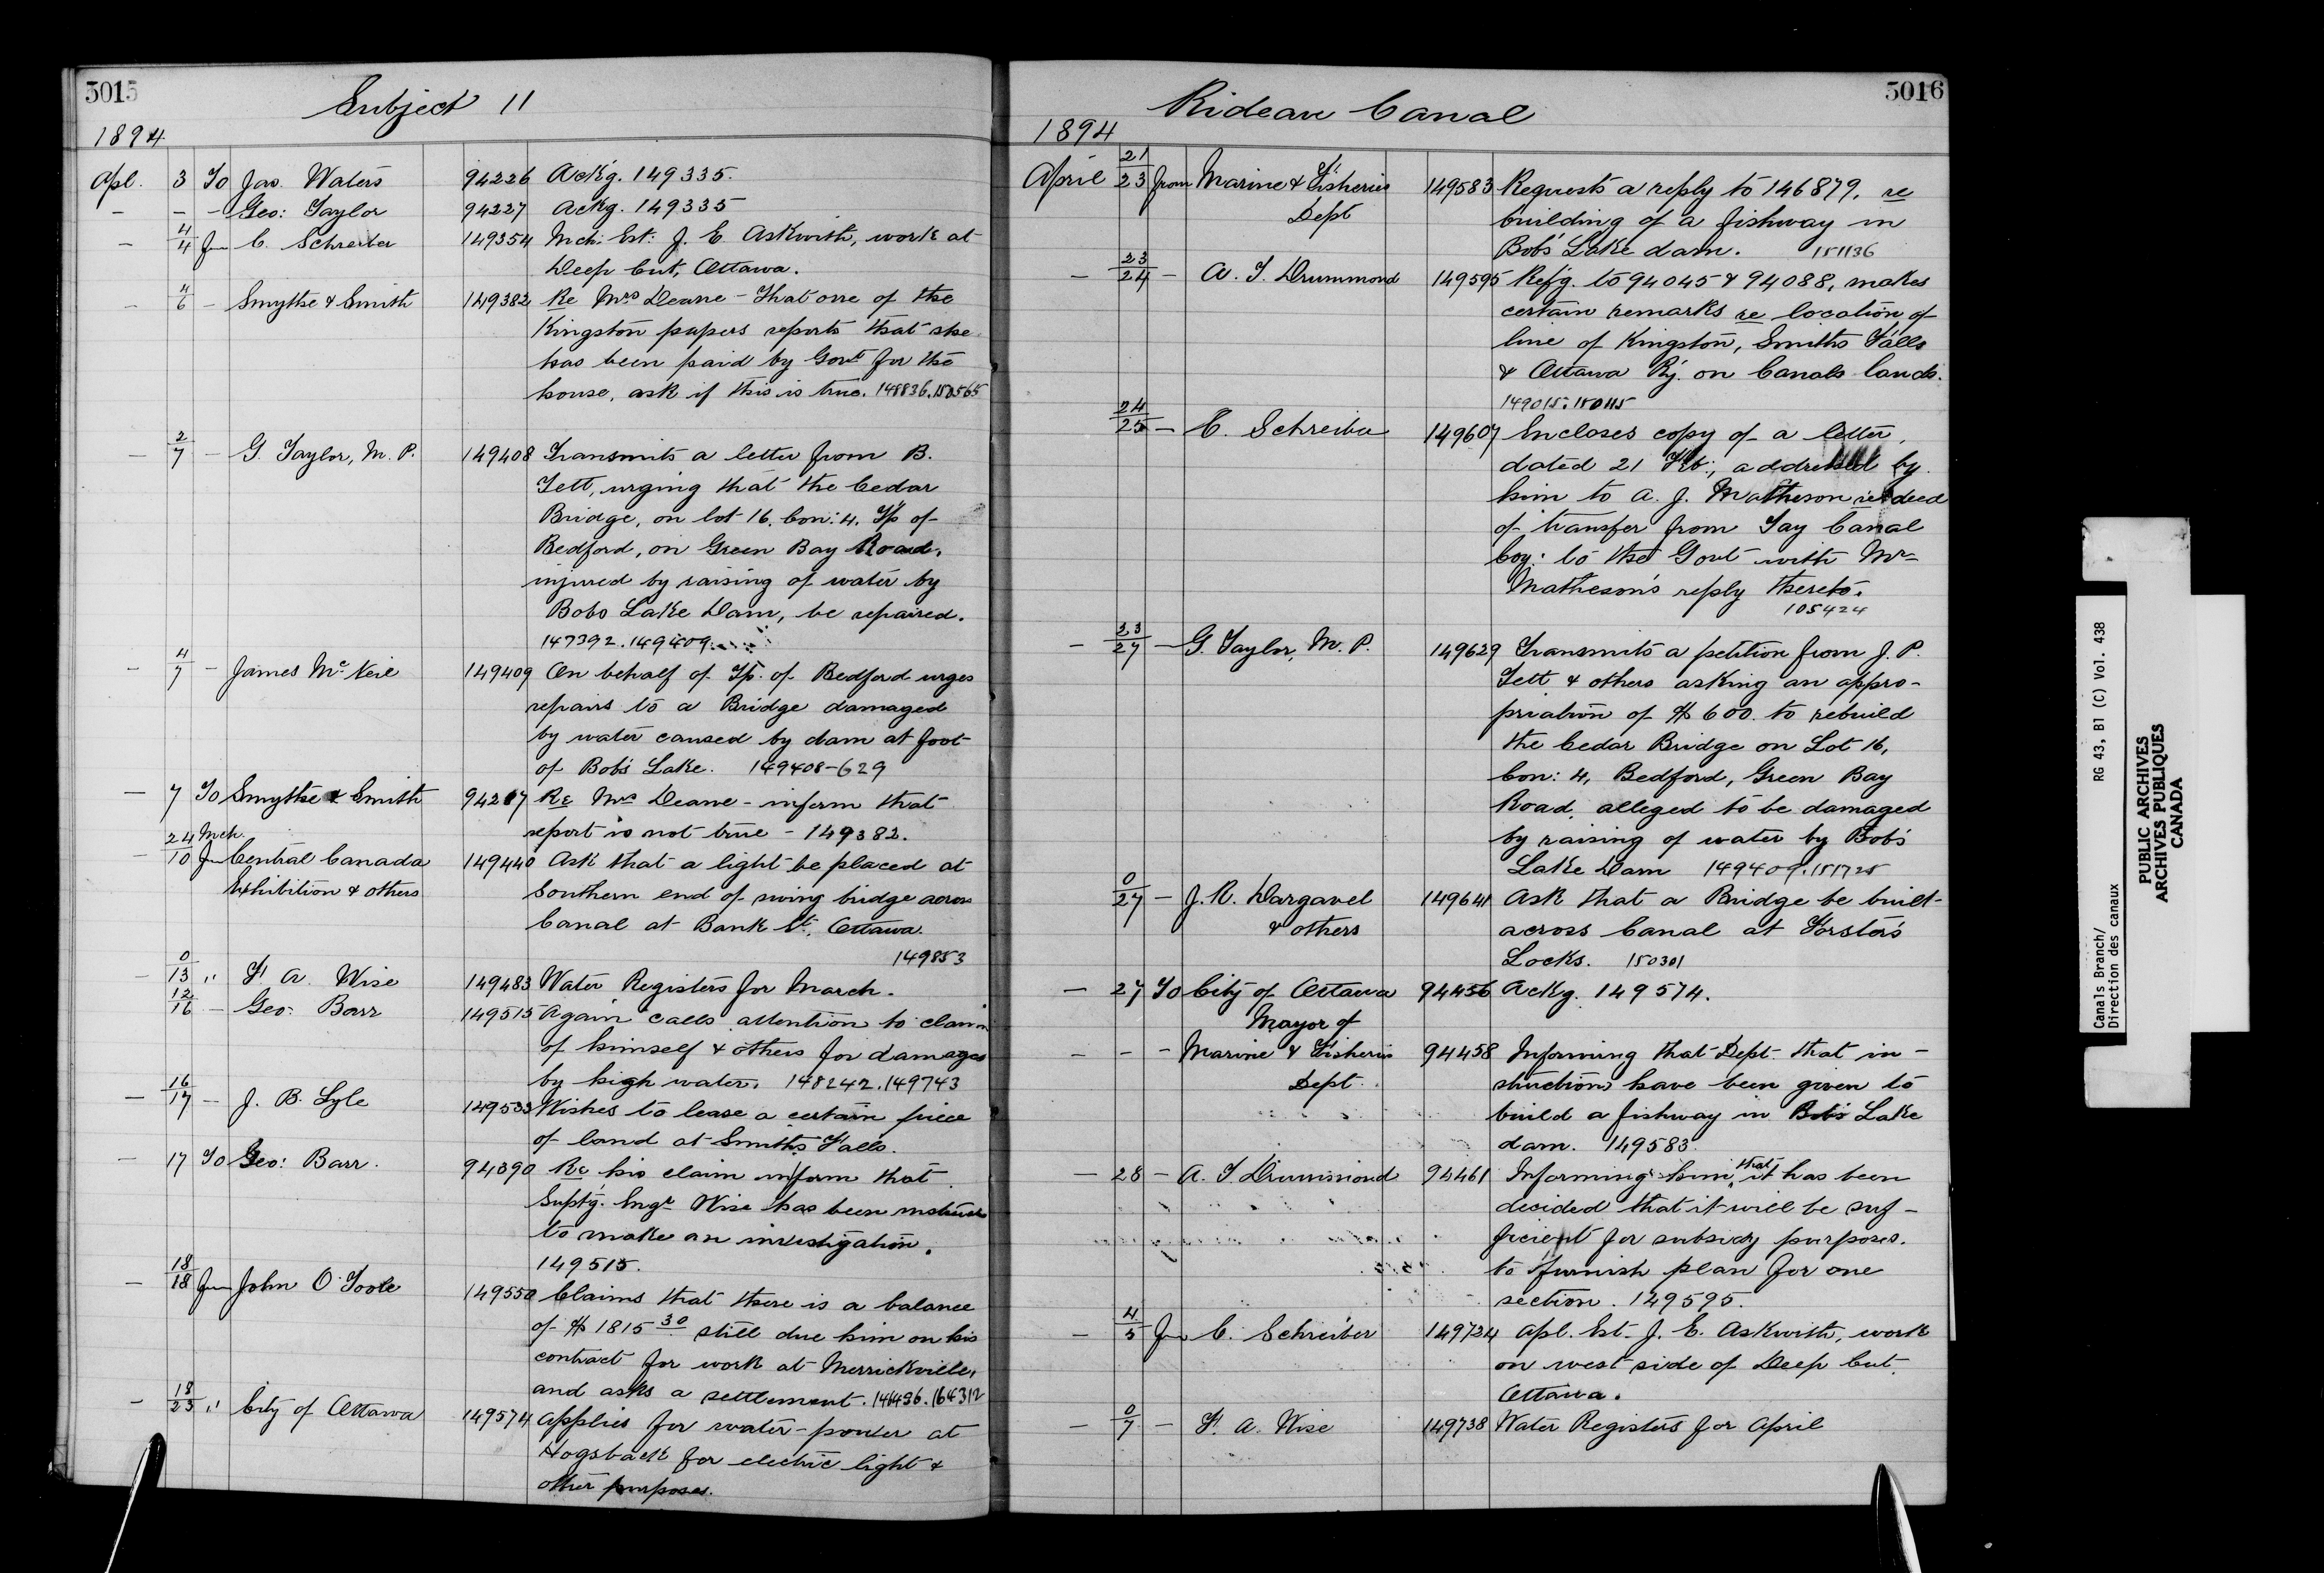 5015
Subject 11
1894
Apl. 3 To Jas. Waters 94226 Ackg. 149335.
- - - Geo: Taylor 94227 Ackg. 149335
- 4/4 fm C. Schreiber 149354 Mch: Est: J. E. Askwith, work at
Deep Cut, Ottawa.
- 4/6 - Smythe & Smith 149382 Re Mrs Deane - That one of the
Kingston papers reports that she
has been paid by Govt for the
house, ask if this is true. 148836.150565
- 2/7 - G. Taylor, M. P. 149408 Transmits a letter from B.
Tett, urging that the Cedar
Bridge, on lot 16. Con: 4. Tp of
Bedford, on Green Bay Road,
injured by raising of water by
Bobs Lake Dam, be repaired.
147392.149409
- 4/7 - James McNeil 149409 On behalf of Tp. of Bedford urges
repairs to a Bridge damaged
by water caused by dam at foot
of Bob's Lake. 149408-629
- 7 To Smythe & Smith 94217 Re Mrs Deane - inform that
report is not true - 149382.
- 24 Mch./10 fm Central Canada 149440 Ask that a light be placed at
Exhibition & others Southern end of swing bridge across
Canal at Bank St, Ottawa.
149853
- 0/13 " F. A. Wise 149483 Water Registers for March.
12/16 - Geo: Barr 149515 Again calls attention to claim
of himself & others for damages
by high water. 148242.149743
- 16/17 - J. B. Lyle 149533 Wishes to lease a certain piece
of land at Smiths Falls.
- 17 To Geo: Barr. 94390 Re his claim inform that
Suptg. Engr Wise has been instructed
to make an investigation.
149515.
- 18/18 fm John O'Toole 149550 Claims that there is a balance
of $1815 30 still due him on his
contract for work at Merrickville,
and asks a settlement. 164312
- 18/23 " City of Ottawa 149574 Applies for water-power at
Hogsback for electric light &
other purposes.
5016
Rideau Canal
1894
April 21/23 from Marine & Fisheries 149583 Requests a reply to 146879, re
Dept building of a fishway in
Bob's Lake dam. 151136
- 23/24 - A. T. Drummond 149595 Refg. to 94045 & 94088, makes
certain remarks re location of
line of Kingston, Smiths Falls
& Ottawa Ry. on Canals lands.
149015.150115
24/25 - C. Schreiber 149607 Encloses copy of a letter,
dated 21 Feb:, addressed by
him to A. J. Matheson re deed
of transfer from Tay Canal
Coy: to the Govt with Mr
Matheson's reply thereto.
105424
- 23/27 - G. Taylor, M. P. 149629 Transmits a petition from J. P.
Tett & others asking an appro-
priation of $600. to rebuild
the Cedar Bridge on Lot 16,
Con: 4, Bedford, Green Bay
Road, alleged to be damaged
by raising of water by Bob's
Lake Dam 149409.151725
0/27 - J. R. Dargavel 149641 Ask that a Bridge be built
& others across Canal at Forster's
Locks. 150301
- 27 To City of Ottawa 94456 Ackg. 149574.
Mayor of
- - - Marine & Fisheries 94458 Informing that Dept. that in-
Dept. structions have been given to
build a fishway in Bob's Lake
dam. 149583.
- 28 - A. T. Drummond 94461 Informing him that it has been
decided that it will be suf-
ficient for subsidy purposes.
to furnish plan for one
section. 149595.
- 4/5 fm C. Schreiber 149724 Apl. Est. J. E. Askwith, work
on west side of Deep Cut,
Ottawa.
- 0/7 - F. A. Wise 149738 Water Registers for April
Canals Branch/ RG 43, B1 (C) Vol. 438
Direction des canaux
PUBLIC ARCHIVES
ARCHIVES PUBLIQUES
CANADA